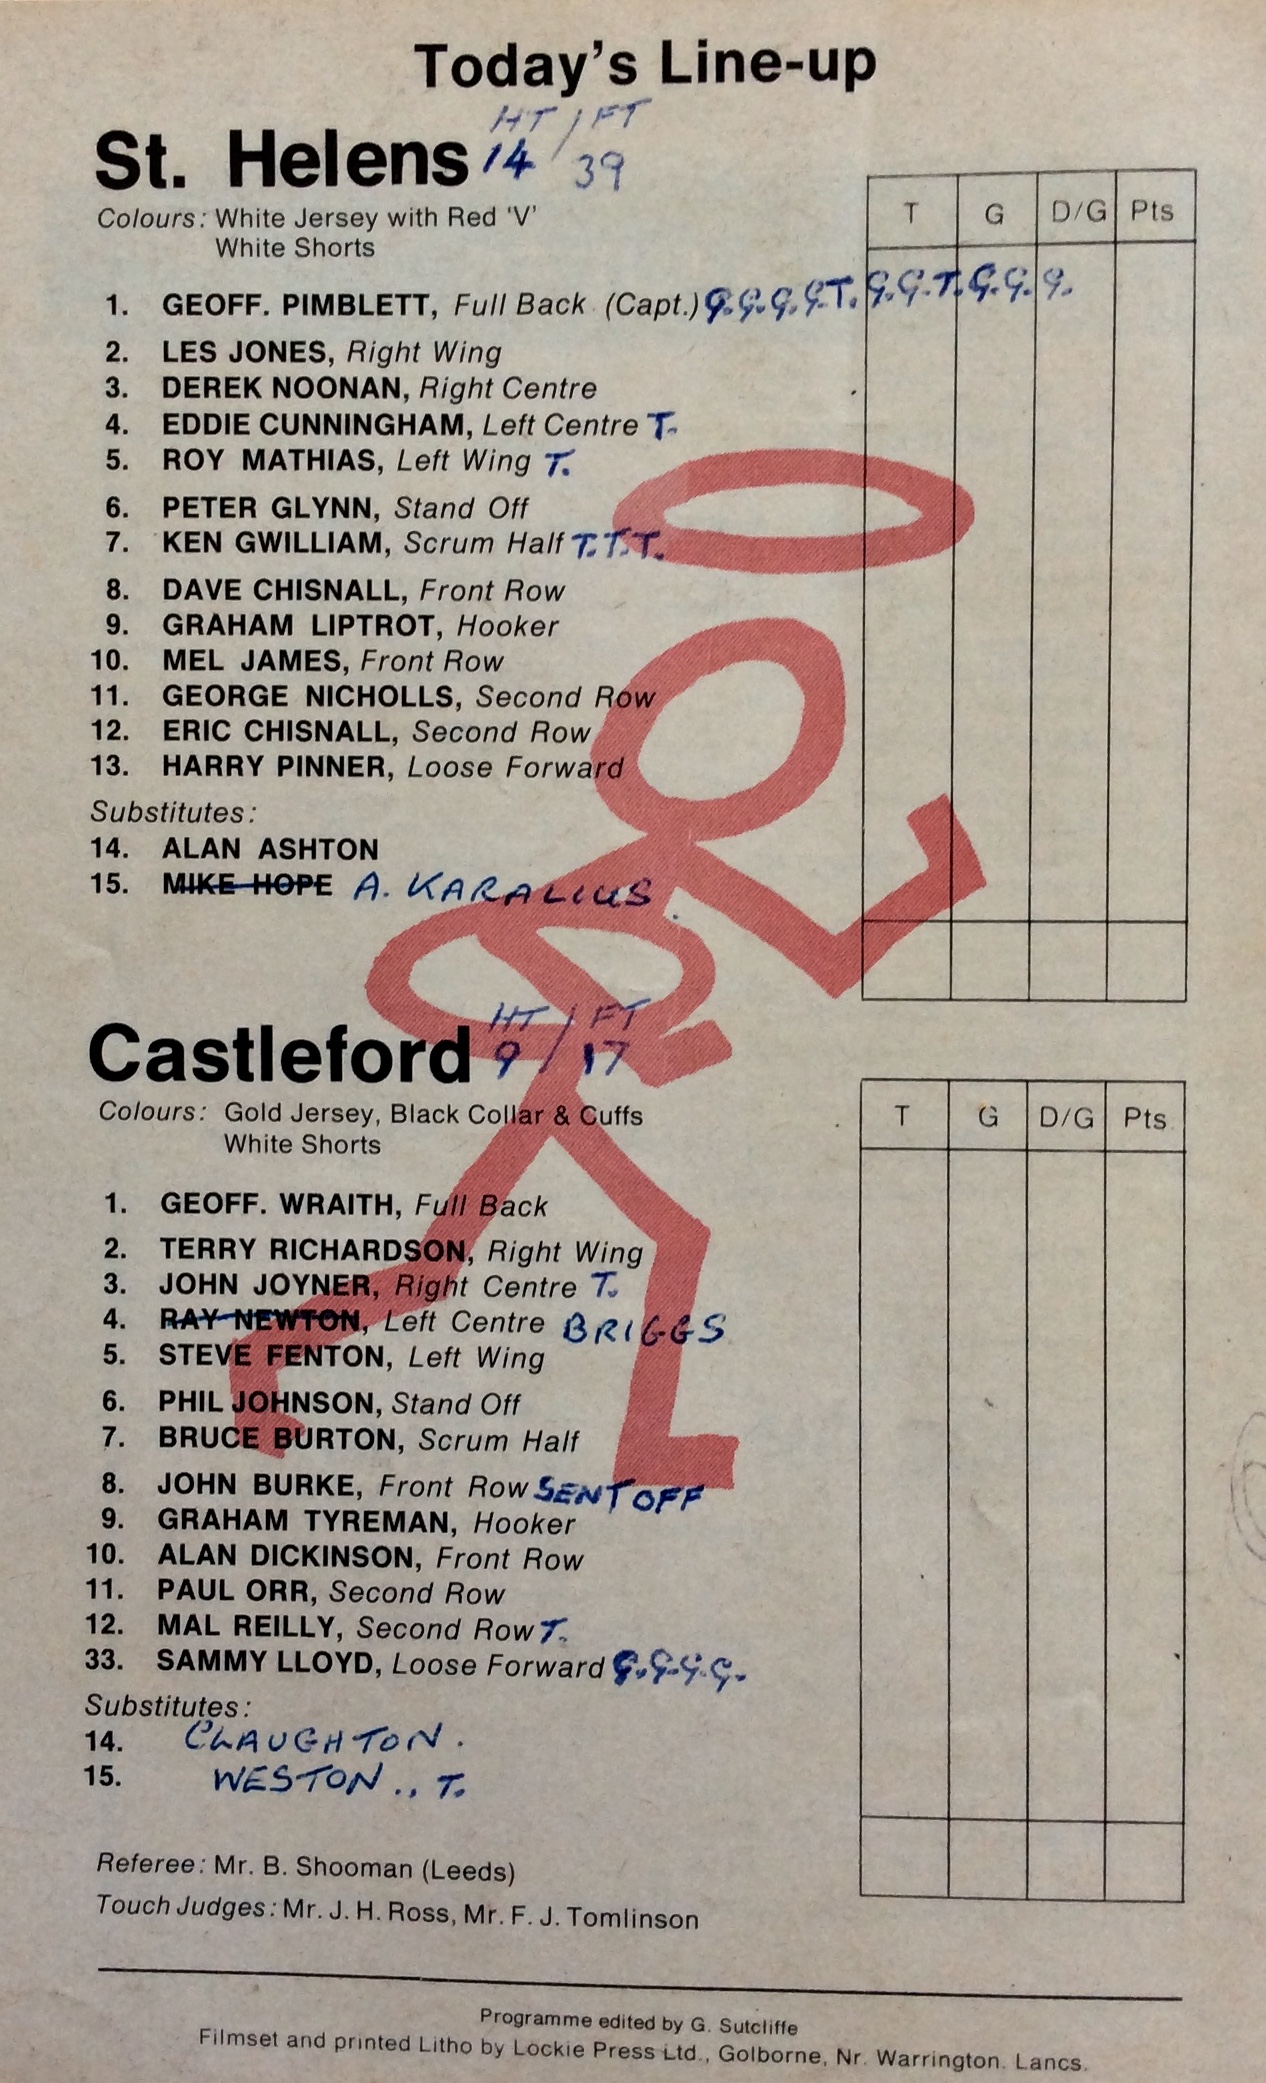 Today's Line-up
HT / FT
St. Helens 14 / 39
Colours: White Jersey with Red 'V'
White Shorts
T G D/G Pts
1. GEOFF. PIMBLETT, Full Back (Capt.) G.G.G.G.T.G.G.T.G.G.G.
2. LES JONES, Right Wing
3. DEREK NOONAN, Right Centre
4. EDDIE CUNNINGHAM, Left Centre T.
5. ROY MATHIAS, Left Wing T.
6. PETER GLYNN, Stand Off
7. KEN GWILLIAM, Scrum Half T.T.T.
8. DAVE CHISNALL, Front Row
9. GRAHAM LIPTROT, Hooker
10. MEL JAMES, Front Row
11. GEORGE NICHOLLS, Second Row
12. ERIC CHISNALL, Second Row
13. HARRY PINNER, Loose Forward
Substitutes:
14. ALAN ASHTON
15. MIKE HOPE A. KARALIUS
HT / FT
Castleford 9 / 17
Colours: Gold Jersey, Black Collar & Cuffs
White Shorts
T G D/G Pts
1. GEOFF. WRAITH, Full Back
2. TERRY RICHARDSON, Right Wing
3. JOHN JOYNER, Right Centre T.
4. RAY NEWTON, Left Centre BRIGGS
5. STEVE FENTON, Left Wing
6. PHIL JOHNSON, Stand Off
7. BRUCE BURTON, Scrum Half
8. JOHN BURKE, Front Row SENT OFF
9. GRAHAM TYREMAN, Hooker
10. ALAN DICKINSON, Front Row
11. PAUL ORR, Second Row
12. MAL REILLY, Second Row T.
33. SAMMY LLOYD, Loose Forward G.G.G.G.
Substitutes:
14. CLAUGHTON.
15. WESTON.. T.
Referee: Mr. B. Shooman (Leeds)
Touch Judges: Mr. J. H. Ross, Mr. F. J. Tomlinson
Programme edited by G. Sutcliffe
Filmset and printed Litho by Lockie Press Ltd., Golborne, Nr. Warrington. Lancs.